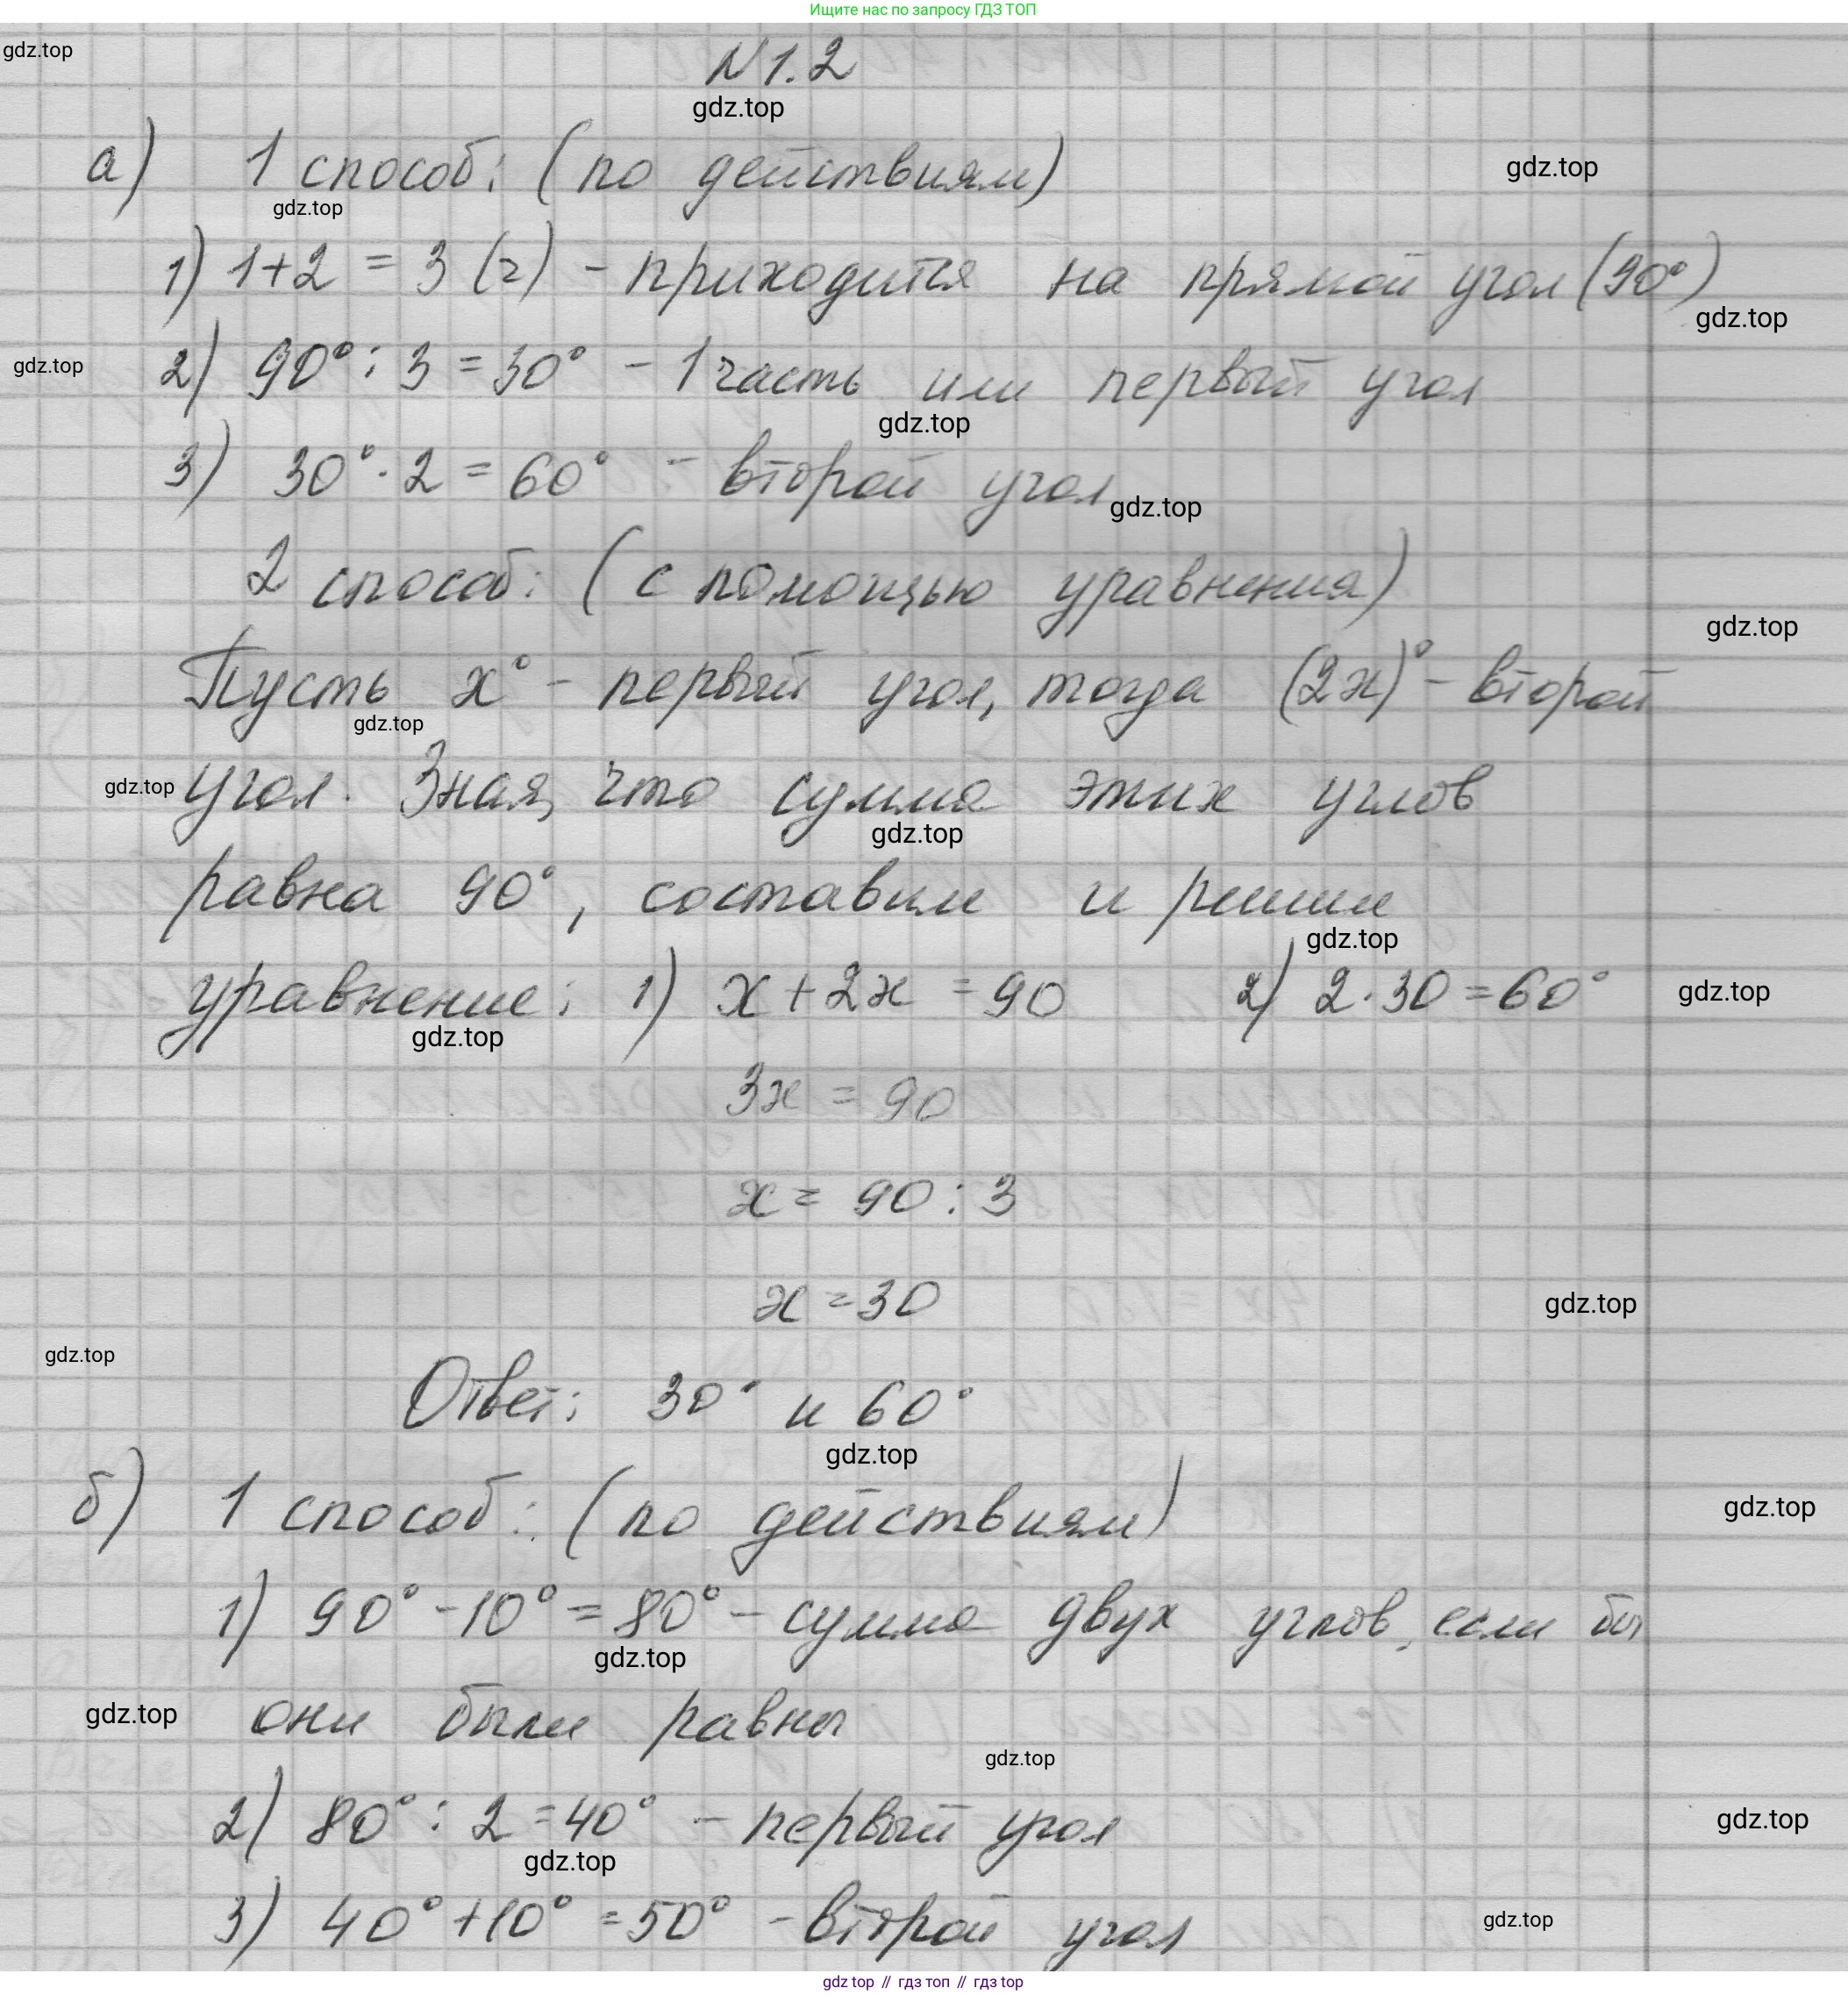 Ищите нас по запросу ГДЗ ТОП
gdz.top
N1.2
gdz.top
а) 1 способ: (по действиям)
gdz.top
gdz.top
1) 1+2 = 3 (г) - приходится на прямой угол (90°)
gdz.top
2) 90° : 3 = 30° - 1 часть или первый угол
gdz.top
gdz.top
3) 30° · 2 = 60° - второй угол
gdz.top
2 способ: (с помощью уравнения)
gdz.top
Пусть x° - первый угол, тогда (2x)° - второй
gdz.top
угол. Зная, что сумма этих углов
gdz.top
gdz.top
равна 90°, составим и решим
gdz.top
уравнение: 1) x + 2x = 90 2) 2·30 = 60°
gdz.top
gdz.top
3x = 90
x = 90 : 3
x = 30
gdz.top
gdz.top
Ответ: 30° и 60°
gdz.top
б) 1 способ: (по действиям)
gdz.top
1) 90° - 10° = 80° - сумма двух углов, если бы
gdz.top
они были равны
gdz.top
gdz.top
2) 80° : 2 = 40° - первый угол
gdz.top
gdz.top
3) 40° + 10° = 50° - второй угол
gdz.top
gdz top // гдз топ // gdz top